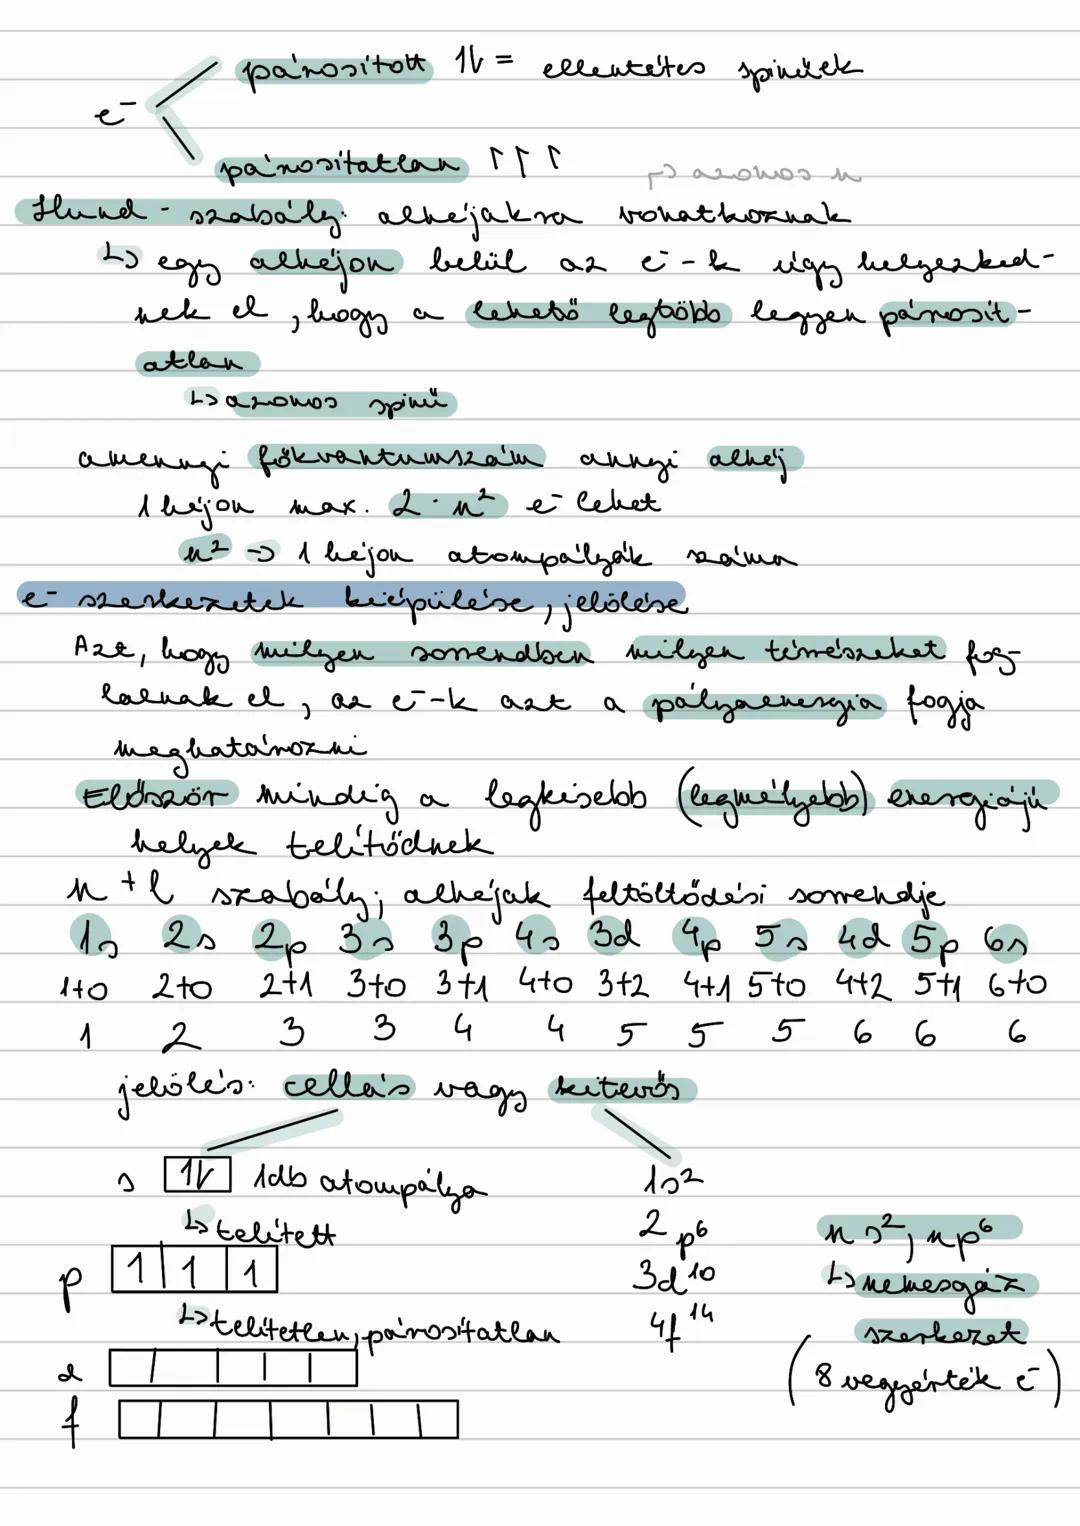 párosított 1l = ellentétes spinűek
e⁻
párosítatlan ↿↿↿
↱ azonos n
Hund - szabály: alhéjakra vonatkoznak
↳ egy alhéjon belül az e⁻-k úgy helyezked-
nek el, hogy a lehető legtöbb legyen párosít-
atlan
↳ azonos spinű
amennyi főkvantumszám annyi alhéj
1 héjon max. 2 · n² e⁻ lehet
n² → 1 héjon atompályák száma
e⁻ szerkezetek kiépülése, jelölése
Azt, hogy milyen sorrendben milyen térrészeket fog-
lalnak el, az e⁻-k azt a pályaenergia fogja
meghatározni
Először mindig a legkisebb (legmélyebb) energiájú
helyek telítődnek
n + l szabály; alhéjak feltöltődési sorrendje
1s 2s 2p 3s 3p 4s 3d 4p 5s 4d 5p 6s
1+0 2+0 2+1 3+0 3+1 4+0 3+2 4+1 5+0 4+2 5+1 6+0
1 2 3 3 4 4 5 5 5 6 6 6
jelölés: cellás vagy kitevős
s 1l 1db atompálya 1s²
↳ telített 2p⁶ ns², np⁶
p 1 1 1 3d¹⁰ ↳ nemesgáz
↳ telítetlen, párosítatlan 4f¹⁴ szerkezet
d (8 vegyérték e⁻)
f